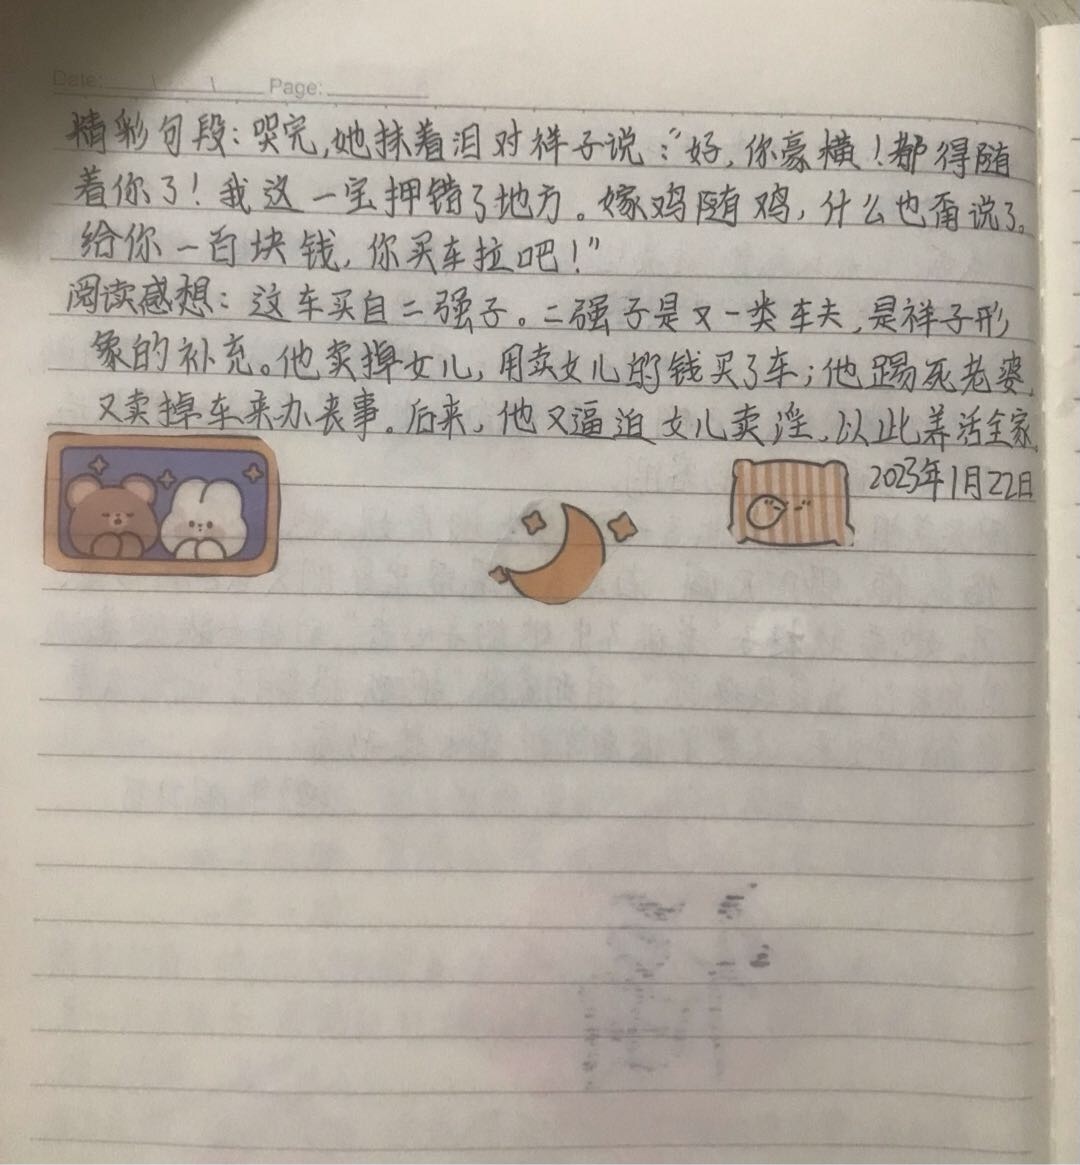 Date: \ \ Page:
精彩句段：哭完，她抹着泪对祥子说："好，你豪横！都得随
着你了！我这一宝押错了地方。嫁鸡随鸡，什么也甭说了。
给你一百块钱，你买车拉吧！"
阅读感想：这车买自二强子。二强子是又一类车夫，是祥子形
象的补充。他卖掉女儿，用卖女儿的钱买了车；他踢死老婆，
又卖掉车来办丧事。后来，他又逼迫女儿卖淫，以此养活全家
2023年1月22日